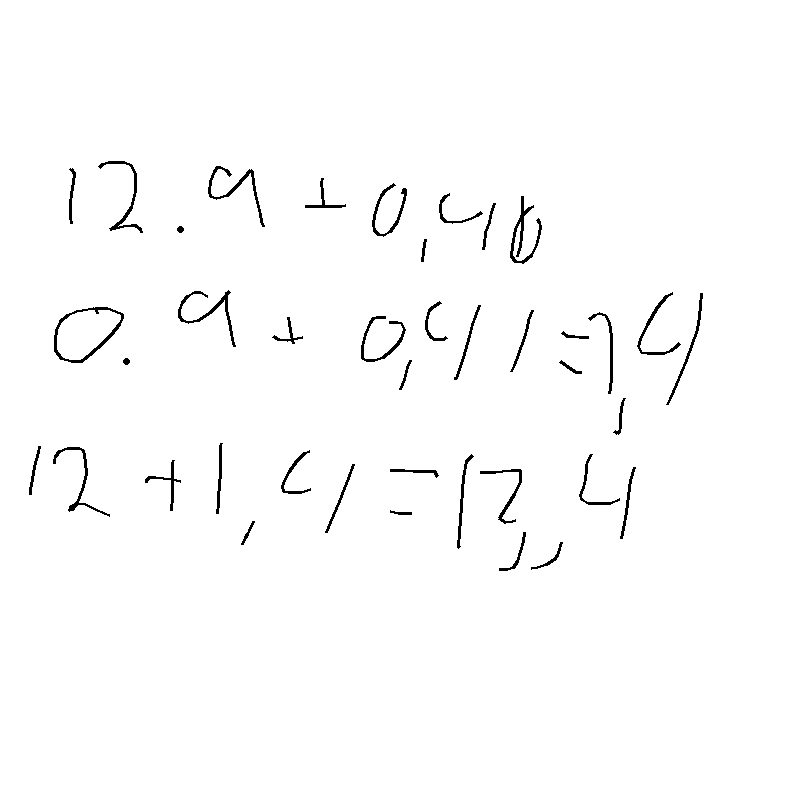 12.9 + 0,40
0.9 + 0,41 = 1,4
12 + 1,4 = 13,,4